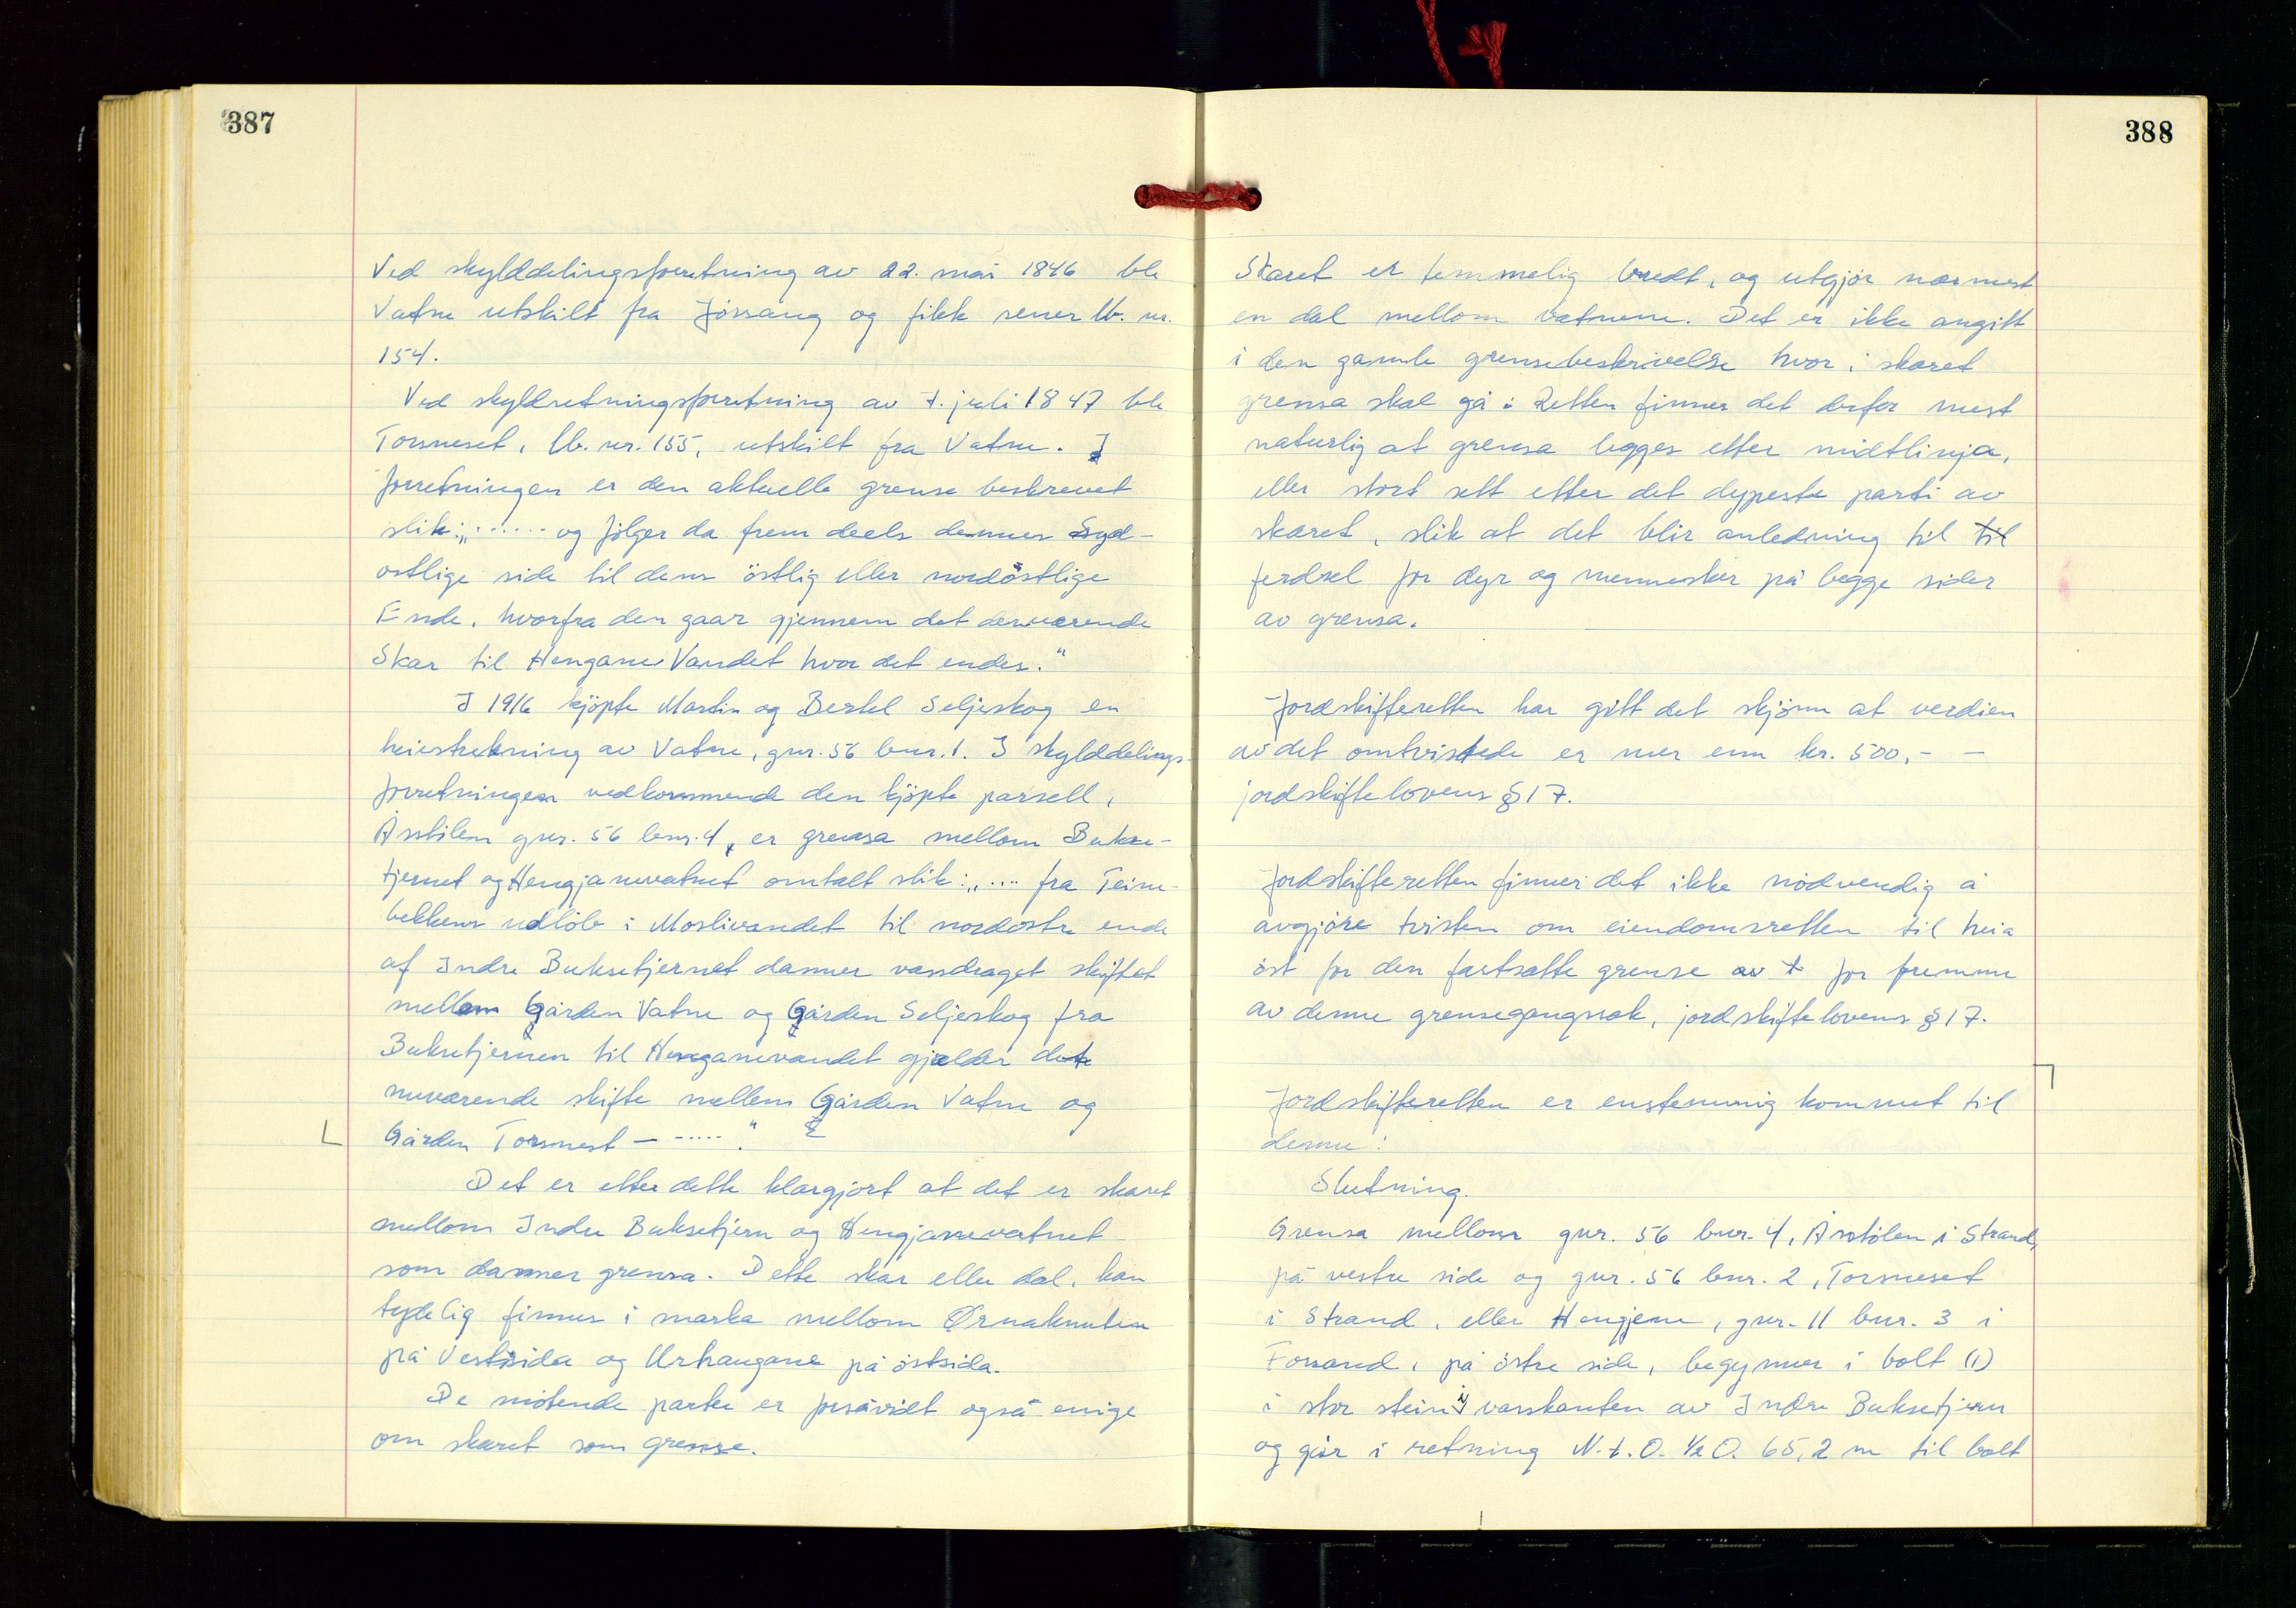 387
Ved skylddelingsforretning av 22. mai 1846 ble
Vatne utskilt fra Jössang og fikk sener lb. nr.
154.
Ved skyldsetningsforretning av 7. juli 1847 ble
Torsneset, lb. nr. 155, utskilt fra Vatne. I
forretningen er den aktuelle grense beskrevet
slik: „...... og følger da frem deels dennes Syd-
ostlige side til dens östlig eller nordöstlige
Ende, hvorfra den gaar gjennem det derværende
Skar til Hengane Vandet hvor det endes."
I 1916 kjöpte Martin og Bertel Seljeskog en
heiestrekning av Vatne, gnr. 56 bnr. 1. I skylddelings-
forretningen vedkommende den kjöpte parsell,
Åsstölen gnr. 56 bnr. 4, er grensa mellom Bukse-
tjernet og Hengjanevatnet omtalt slik: „.... fra Teine-
bekkens udlöb i Moslivandet til nordöstre ende
af Indre Buksetjernet danner vandraget skiftet
mellem Gården Vatne og Gården Seljeskog fra
Buksetjernen til Henganevandet gjælder det
nuværende skifte mellem Gården Vatne og
Gården Torsnest - ....."
Det er etter dette klargjort at det er skaret
mellom Indre Buksetjern og Hengjanevatnet
som danner grensa. Dette skar eller dal, kan
tydelig finnes i marka mellom Ørnaknuten
på Vestsida og Urhaugane på östsida.
De mötende parter er forsåvidt også enige
om skaret som grense.
388
Skaret er temmelig bredt, og utgjör nærmest
en dal mellom vatnene. Det er ikke angitt
i den gamle grensebeskrivelse hvor i skaret
grensa skal gå. Retten finner det derfor mest
naturlig at grensa legges etter midtlinja,
eller stort sett etter det dypeste parti av
skaret, slik at det blir anledning til til
ferdsel for dyr og mennesker på begge sider
av grensa.
Jordskifteretten har gitt det skjönn at verdien
av det omtvistede er mer enn kr. 500,- -
jordskiftelovens § 17.
Jordskifteretten finner det ikke nödvendig å
avgjöre tvisten om eiendomsretten til heia
öst for den fastsatte grense av t for fremme
av denne grensegangssak, jordskiftelovens § 17.
Jordskifteretten er enstemmig kommet til
denne:
Slutning.
Grensa mellom gnr. 56 bnr. 4, Åsstölen i Strand,
på vestre side og gnr. 56 bnr. 2, Torsneset
i Strand, eller Hengjene, gnr. 11 bnr. 3 i
Forsand, på östre side, begynner i bolt (1)
i stor stein i vasskanten av Indre Buksetjern
og går i retning N. t. O. 1/2 O. 65,2 m til bolt